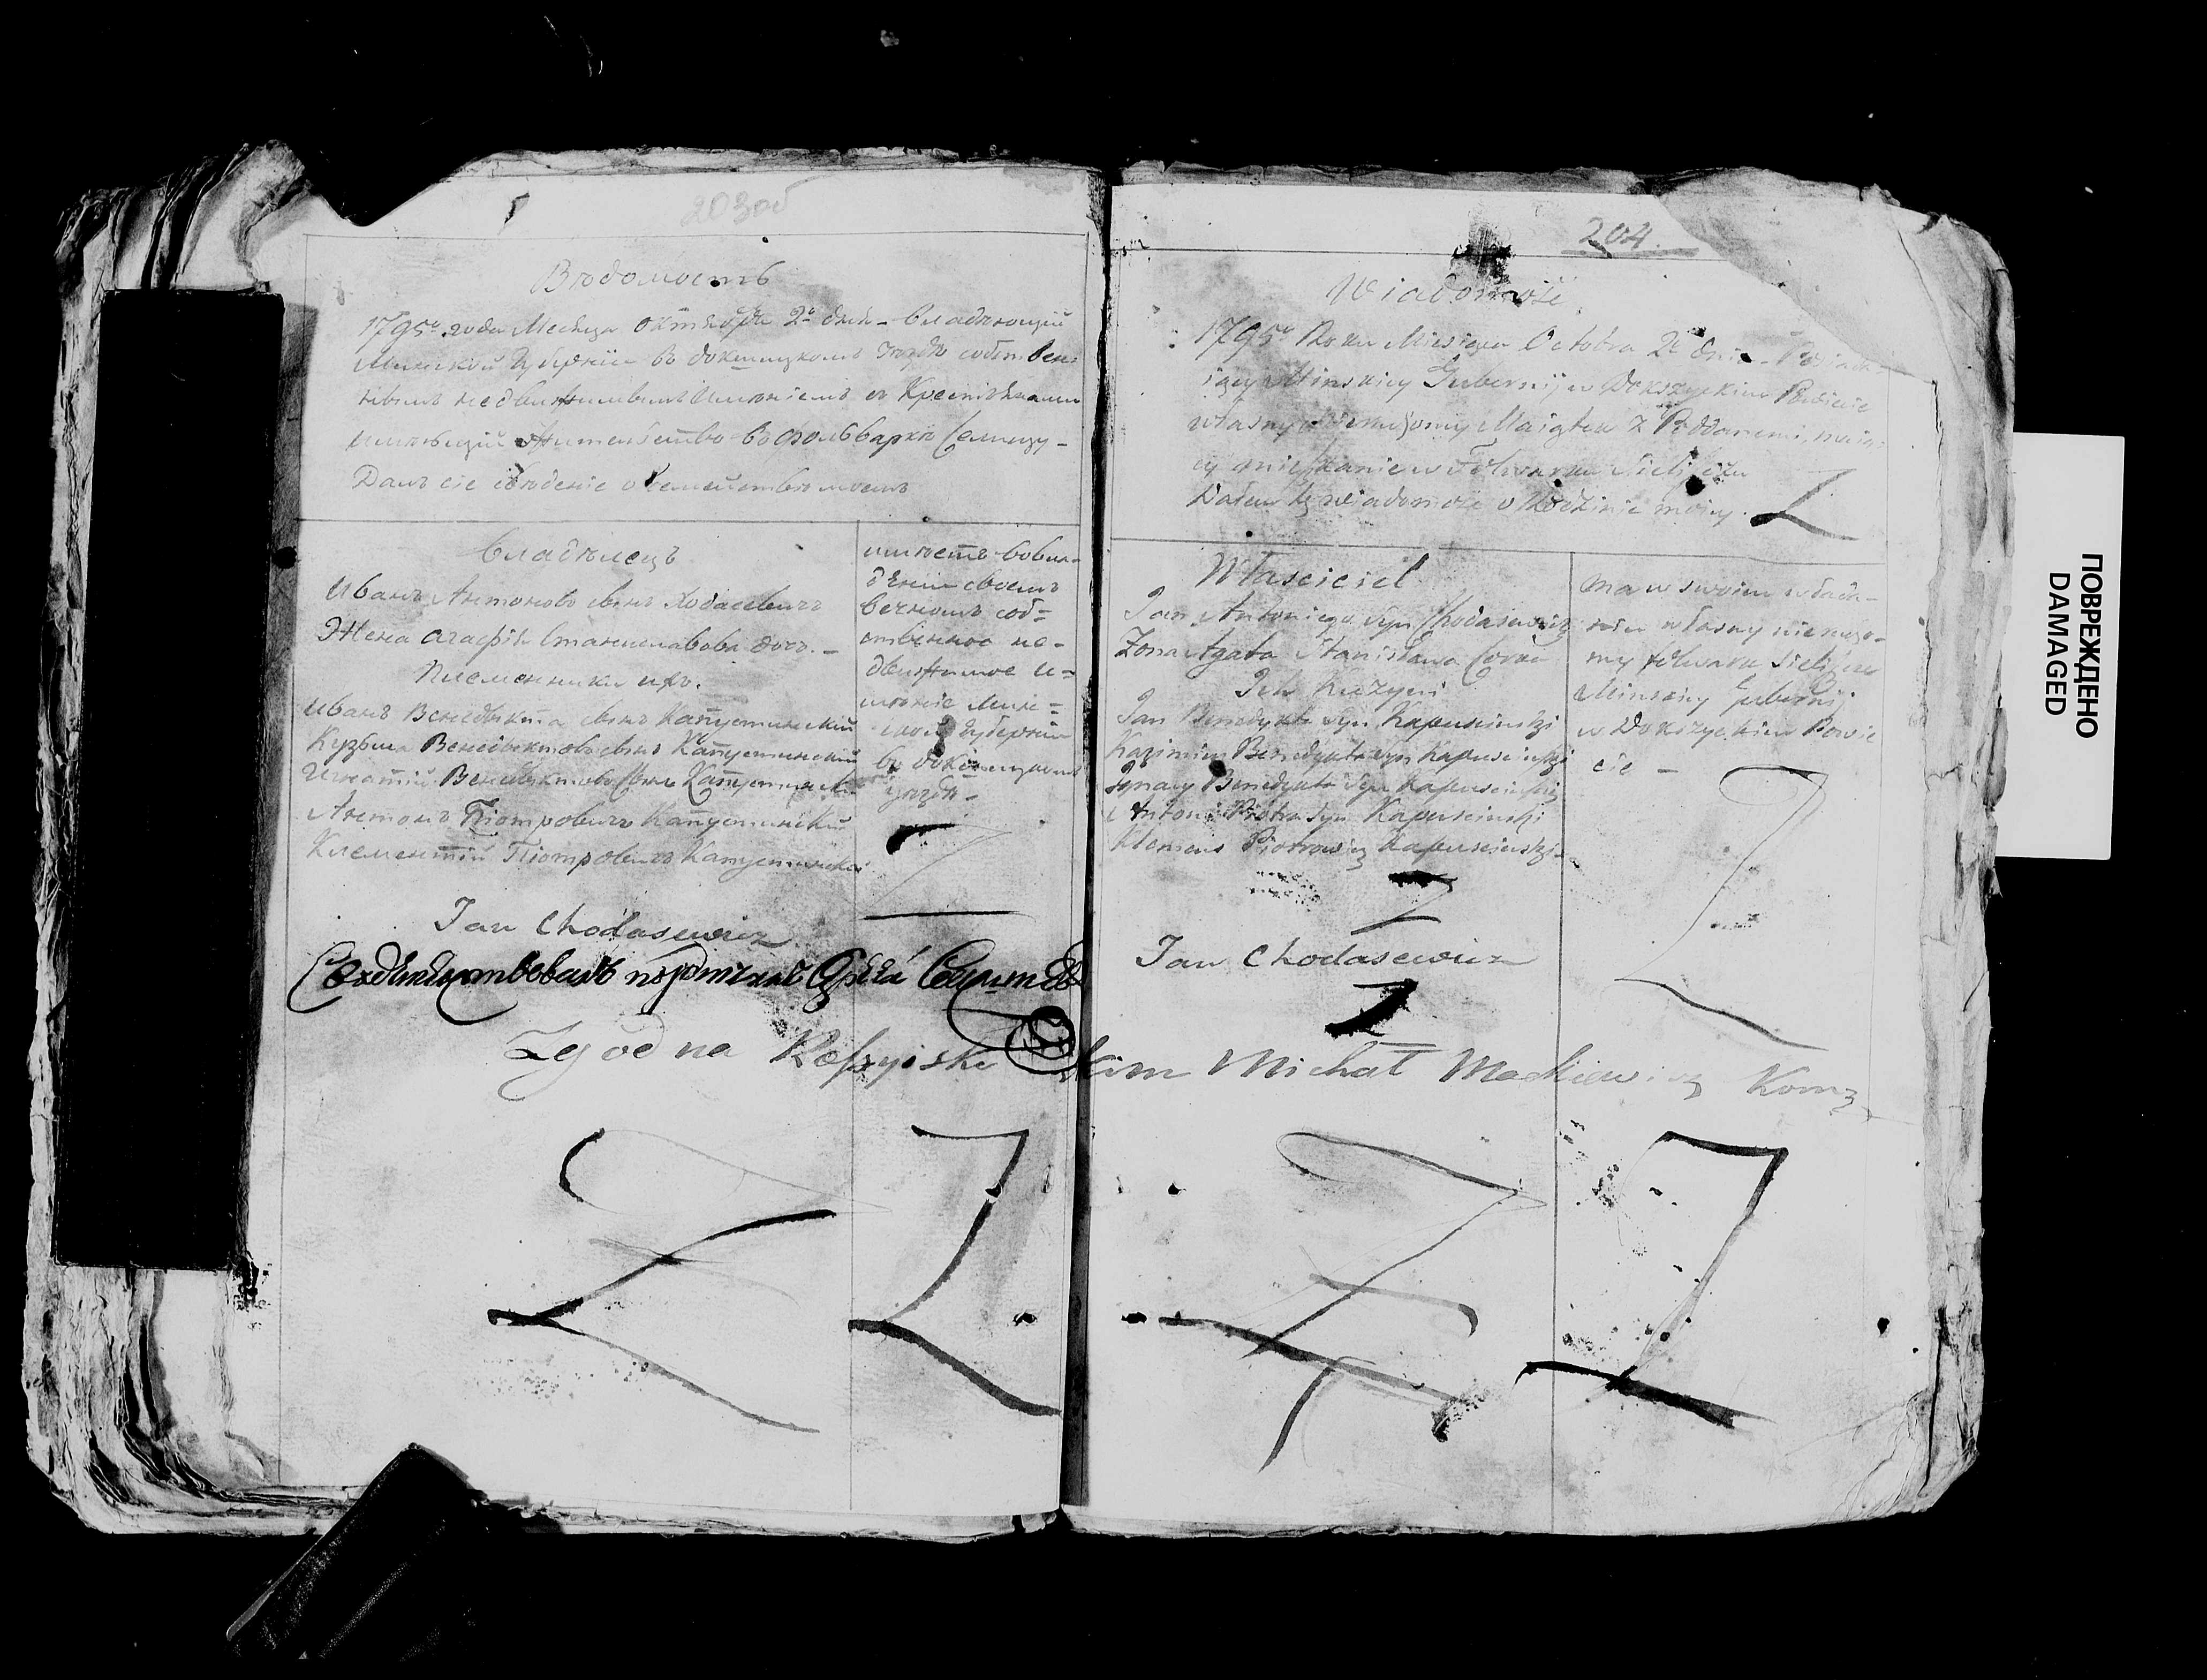 203об
Вѣдомость
1795го года Месяца Октября 2го дня - владѣющій
Минской Губерніи въ докшицкомъ уездѣ собствен=
нымъ недвижимымъ имѣніемъ съ Крестьянами
имѣющій жительство во фольварке
Далъ сіе сведеніе о семействѣ моемъ
владѣлецъ
Иванъ Антоновъ сынъ Ходасевичъ
Жена агафія Станиславова дочь. -
Племянники ихъ.
Иванъ Венедыкта сынъ Капустинский
Кузьма Венедыктовъ сынъ Капустинский
Игнатій Венедыктовъ сынъ Капустинский
Антонъ Піотровичъ Капустинский
Климентій Піотровичъ Капустинский
имѣетъ во вла-
дѣніи своемъ
вечномъ соб=
ственное не-
движимое и=
мѣніе Минс=
кой Губерніи
въ докшицкомъ
уездѣ -
Jan Chodasewicz
Свидѣтельствовалъ
Zgodna
204.
Wiadomość
1795o Roku Miesiąca Octobra 2o dnia - Posiada-
iący Minskiey Gubernij w Dokszyckim Powiecie
własny nieruszomy Maiątek z Poddanemi, maią-
cy mieszkanie w Folwarku
Dałem tę wiadomość o Rodzinie moiey.
Właściciel
Jan Antoniego Syn Chodasewicz
Żona Agata Stanisława Córka
Jch Kużyni
Jan Benedykta Syn Kapuscinski
Kazimierz Benedykta Syn Kapuscinski
Jgnacy Benedykta Syn Kapuscinski
Antoni Piotra Syn Kapuscinski
Klemens Piotrowicz Kapuscinski
ma w swoim włada-
niu własny nieruszo-
my folwark
Minskiey Gubernij
w Dokszyckim Powie
cie -
Jan Chodasewicz
Michał Mackiewicz Kom
ПОВРЕЖДЕНО
DAMAGED